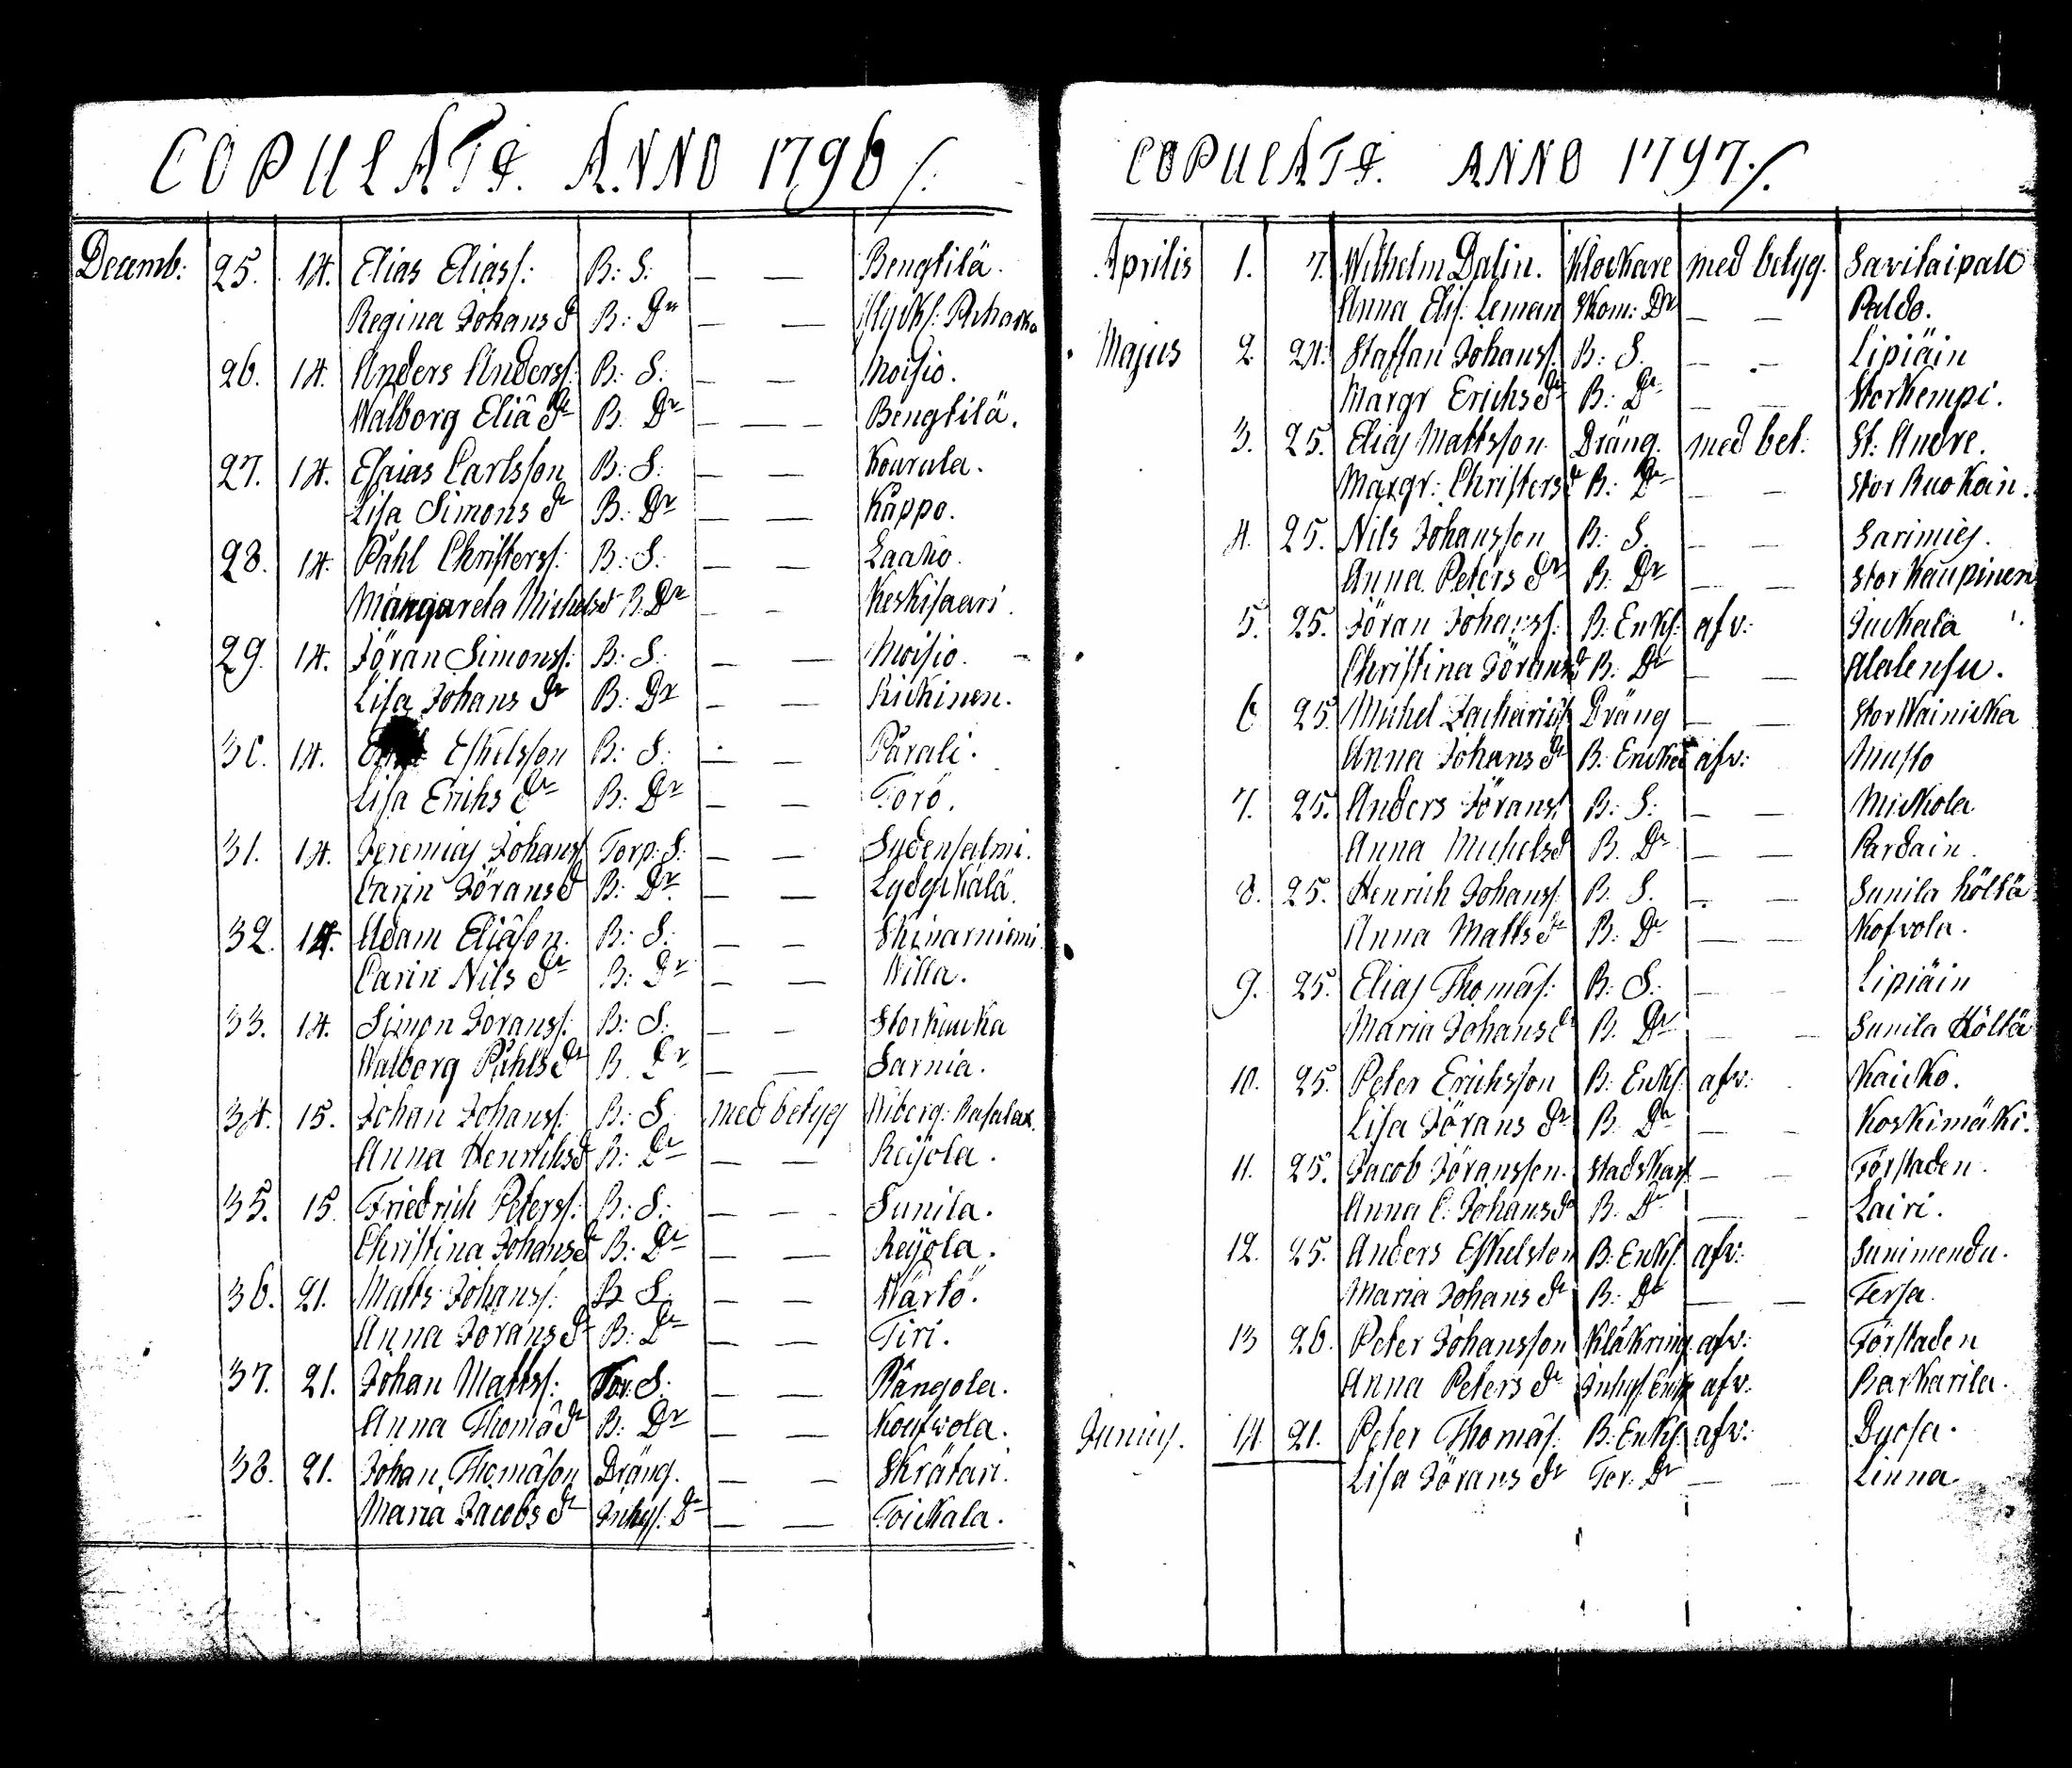 COPULATI. ANNO 1796/.
Decemb: 25. 14. Elias Eliass: B: S: — — Bengtilä.
Regina Johans dr B: Dr — —
26. 14. Anders Anderss: B: S: — — Moisio.
Walborg Eliæ dr B. Dr — — — Bengtilä.
27. 14. Esaias Carlsson B: S: — — Kourula.
Lisa Simons dr B: Dr — — Kåppo.
28. 14. Påhl Christerss: B: S: — — Laako.
Margareta Michelsdr B. Dr — — Keskisaari.
29. 14. Jöran Simonss: B: S: — — Moisio.
Lisa Johans dr B: Dr — — Rickinen.
30. 14. Eskelsson B: S: — — Pärali.
Lisa Erichs dr B: Dr — — Torö.
31. 14. Jeremias Johanss Torp: S: — — Sydensalmi.
Carin Jörans d B: Dr — — Lydykälä.
32. 14. Adam Eliæson. B: S: — — Skinarniemi.
Carin Nils dr B: Dr — — Willa.
33. 14. Simon Joranss: B: S: — — Storkiucka
Walborg Påhls dr B. Dr — — Sarnia.
34. 15. Johan Johanss: B: S. med betyg Wiborg:
Anna Henrichsd B: Dr — — Reijola.
35. 15. Friedrich Peterss: B: S: — — - Sunila.
Christina Johansdr B: Dr — — Reijola.
36. 21. Matts Johanss: B S: — — Wärtö.
Anna Jorans dr B: Dr — — Tiri.
37. 21. Johan Mattss: Tor: S: — — Pängola.
Anna Thomæ dr B: Dr — — Koufvola.
38. 21. Johan Thomæson Dräng. — — Skrätari.
Maria Jacobs dr Inhys: Dr — — Toickala.
COPULATI. ANNO 1797./.
Aprilis 1. 7. Wilhelm Dalin. Klockare med betyg. Savitaipale
Anna Elis: Leman Skom: Dr — — Paldo.
Majus 2. 24. Staffan Johanss: B: S. — — Lipiäin
Margr Erichs dr B: Dr — — Storkempi.
3. 25. Elias Mattsson Dräng. med bet: St: Andre.
Margr: Christersdr B: Dr — — Stor Ruokoin.
4. 25. Nils Johansson B: S. — — Sarimies.
Anna Peters dr B: Dr — — Stor Kaupinen
5. 25. Jöran Johanss: B: Enkl: afv: Juckala
Christina Jöransd B: Dr — — Alalensu.
6 25. Michel Zachariæs Dräng — — Stor Wainicka
Anna Johans dr B: Enckia afv: Musto
7. 25. Anders Jöranss: B: S: — — Mickola
Anna Michelsd B. Dr — — Pardain.
8. 25. Henrich Johanss: B: S. — — Sunila Költä
Anna Matts dr B: Dr — — Kofvola.
9. 25. Elias Thomæs: B: S: — — Lipiäin
Maria Johansd B. Dr — — Sunila Költä
10. 25. Peter Erichsson B: Enkl: afv: Kaucko.
Lisa Jörans dr B: Dr — — Koskimäki.
11. 25. Jacob Jöransson. Stadskarl — — Förstaden.
Anna C: Johansdr B: Dr — — Lairi.
12. 25. Anders Eskelsson B: Enkl: afv: Sunimendu.
Maria Johans dr B: Dr — — Tersa.
13 26. Peter Johansson afv: Förstaden
Anna Peters dr Inhys: Enk: afv: Barkarila.
Junius. 14. 21. Peter Thomæs: B: Enkl: afv: Dyosa.
Lisa Jörans dr Tor: Dr — — Linna